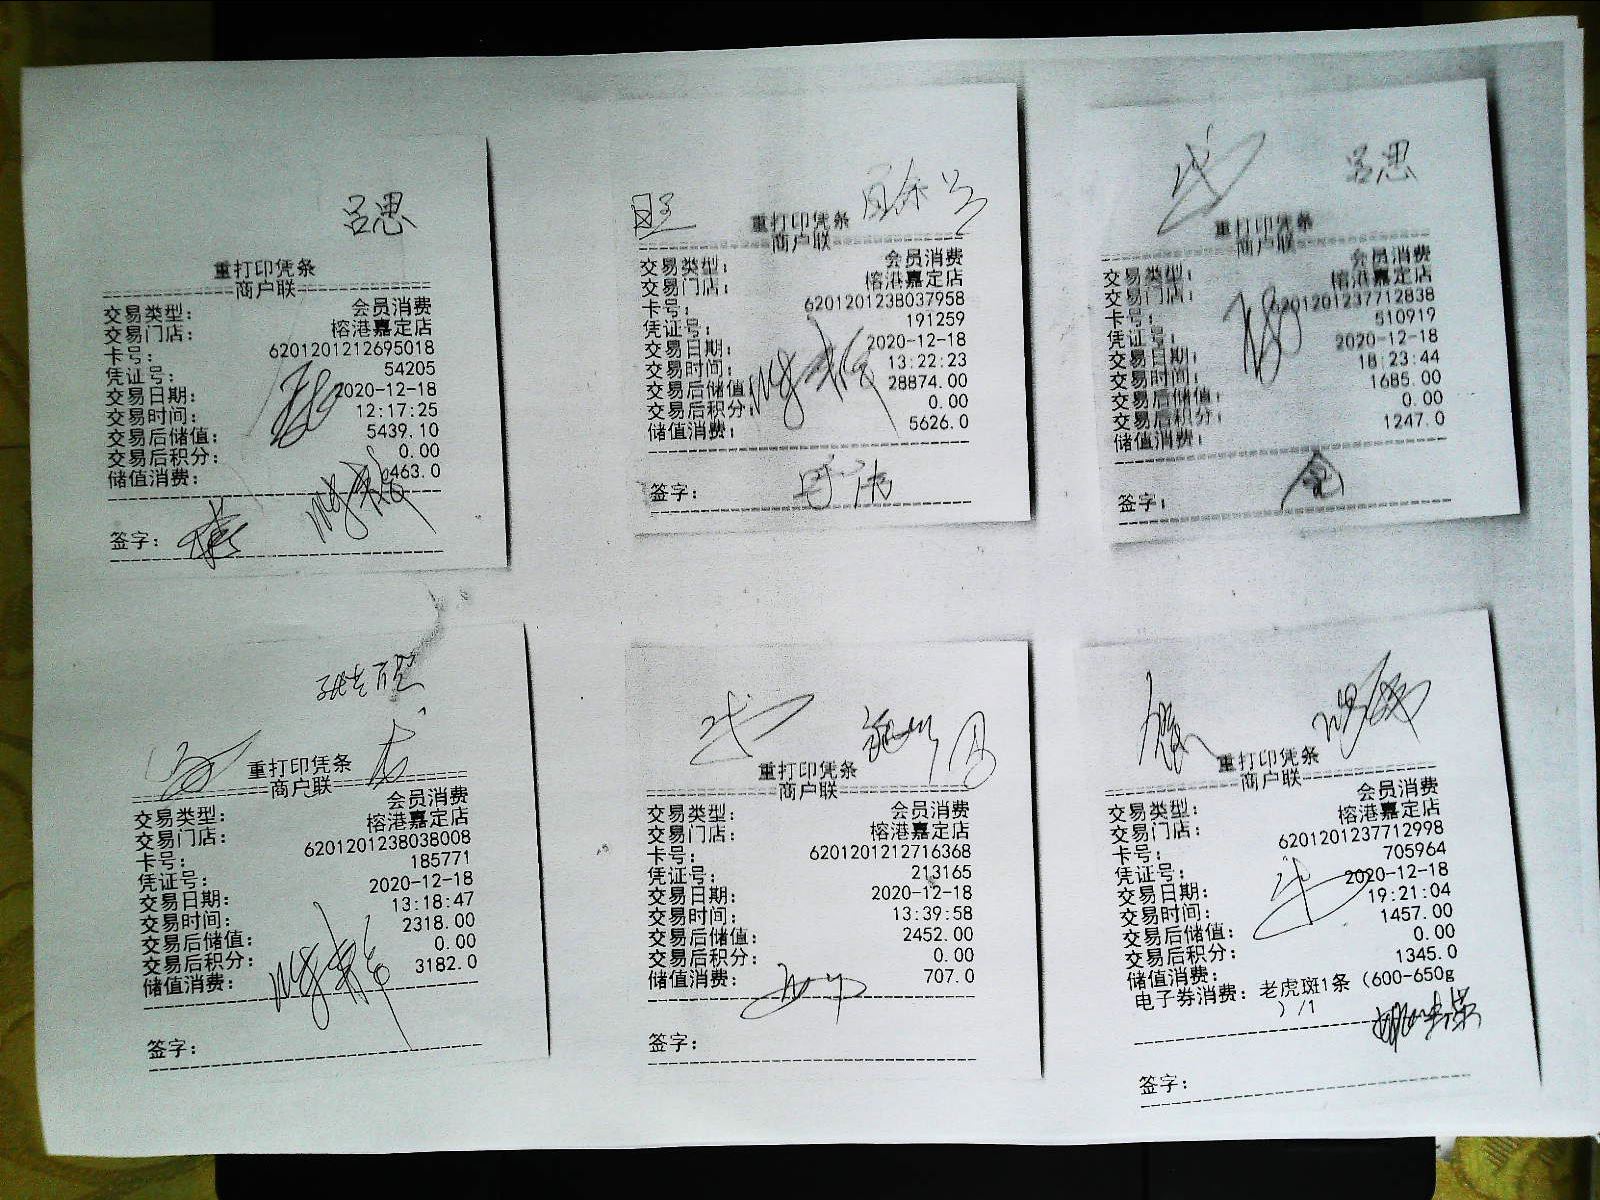 吕思
重打印凭条
商户联
交易类型: 会员消费
交易门店: 榕港嘉定店
卡号: 6201201212695018
凭证号: 54205
交易日期: 2020-12-18
交易时间: 12:17:25
交易后储值: 5439.10
交易后积分: 0.00
储值消费: 463.0
签字:
重打印凭条
商户联
交易类型: 会员消费
交易门店: 榕港嘉定店
卡号: 6201201238037958
凭证号: 191259
交易日期: 2020-12-18
交易时间: 13:22:23
交易后储值: 28874.00
交易后积分: 0.00
储值消费: 5626.0
签字:
吕思
重打印凭条
商户联
交易类型: 会员消费
交易门店: 榕港嘉定店
卡号: 6201201237712838
凭证号: 510919
交易日期: 2020-12-18
交易时间: 18:23:44
交易后储值: 1685.00
交易后积分: 0.00
储值消费: 1247.0
签字:
重打印凭条
商户联
交易类型: 会员消费
交易门店: 榕港嘉定店
卡号: 6201201238038008
凭证号: 185771
交易日期: 2020-12-18
交易时间: 13:18:47
交易后储值: 2318.00
交易后积分: 0.00
储值消费: 3182.0
签字:
重打印凭条
商户联
交易类型: 会员消费
交易门店: 榕港嘉定店
卡号: 6201201212716368
凭证号: 213165
交易日期: 2020-12-18
交易时间: 13:39:58
交易后储值: 2452.00
交易后积分: 0.00
储值消费: 707.0
签字:
重打印凭条
商户联
交易类型: 会员消费
交易门店: 榕港嘉定店
卡号: 6201201237712998
凭证号: 705964
交易日期: 2020-12-18
交易时间: 19:21:04
交易后储值: 1457.00
交易后积分: 0.00
储值消费: 1345.0
电子券消费: 老虎斑1条（600-650g
）/1
签字: